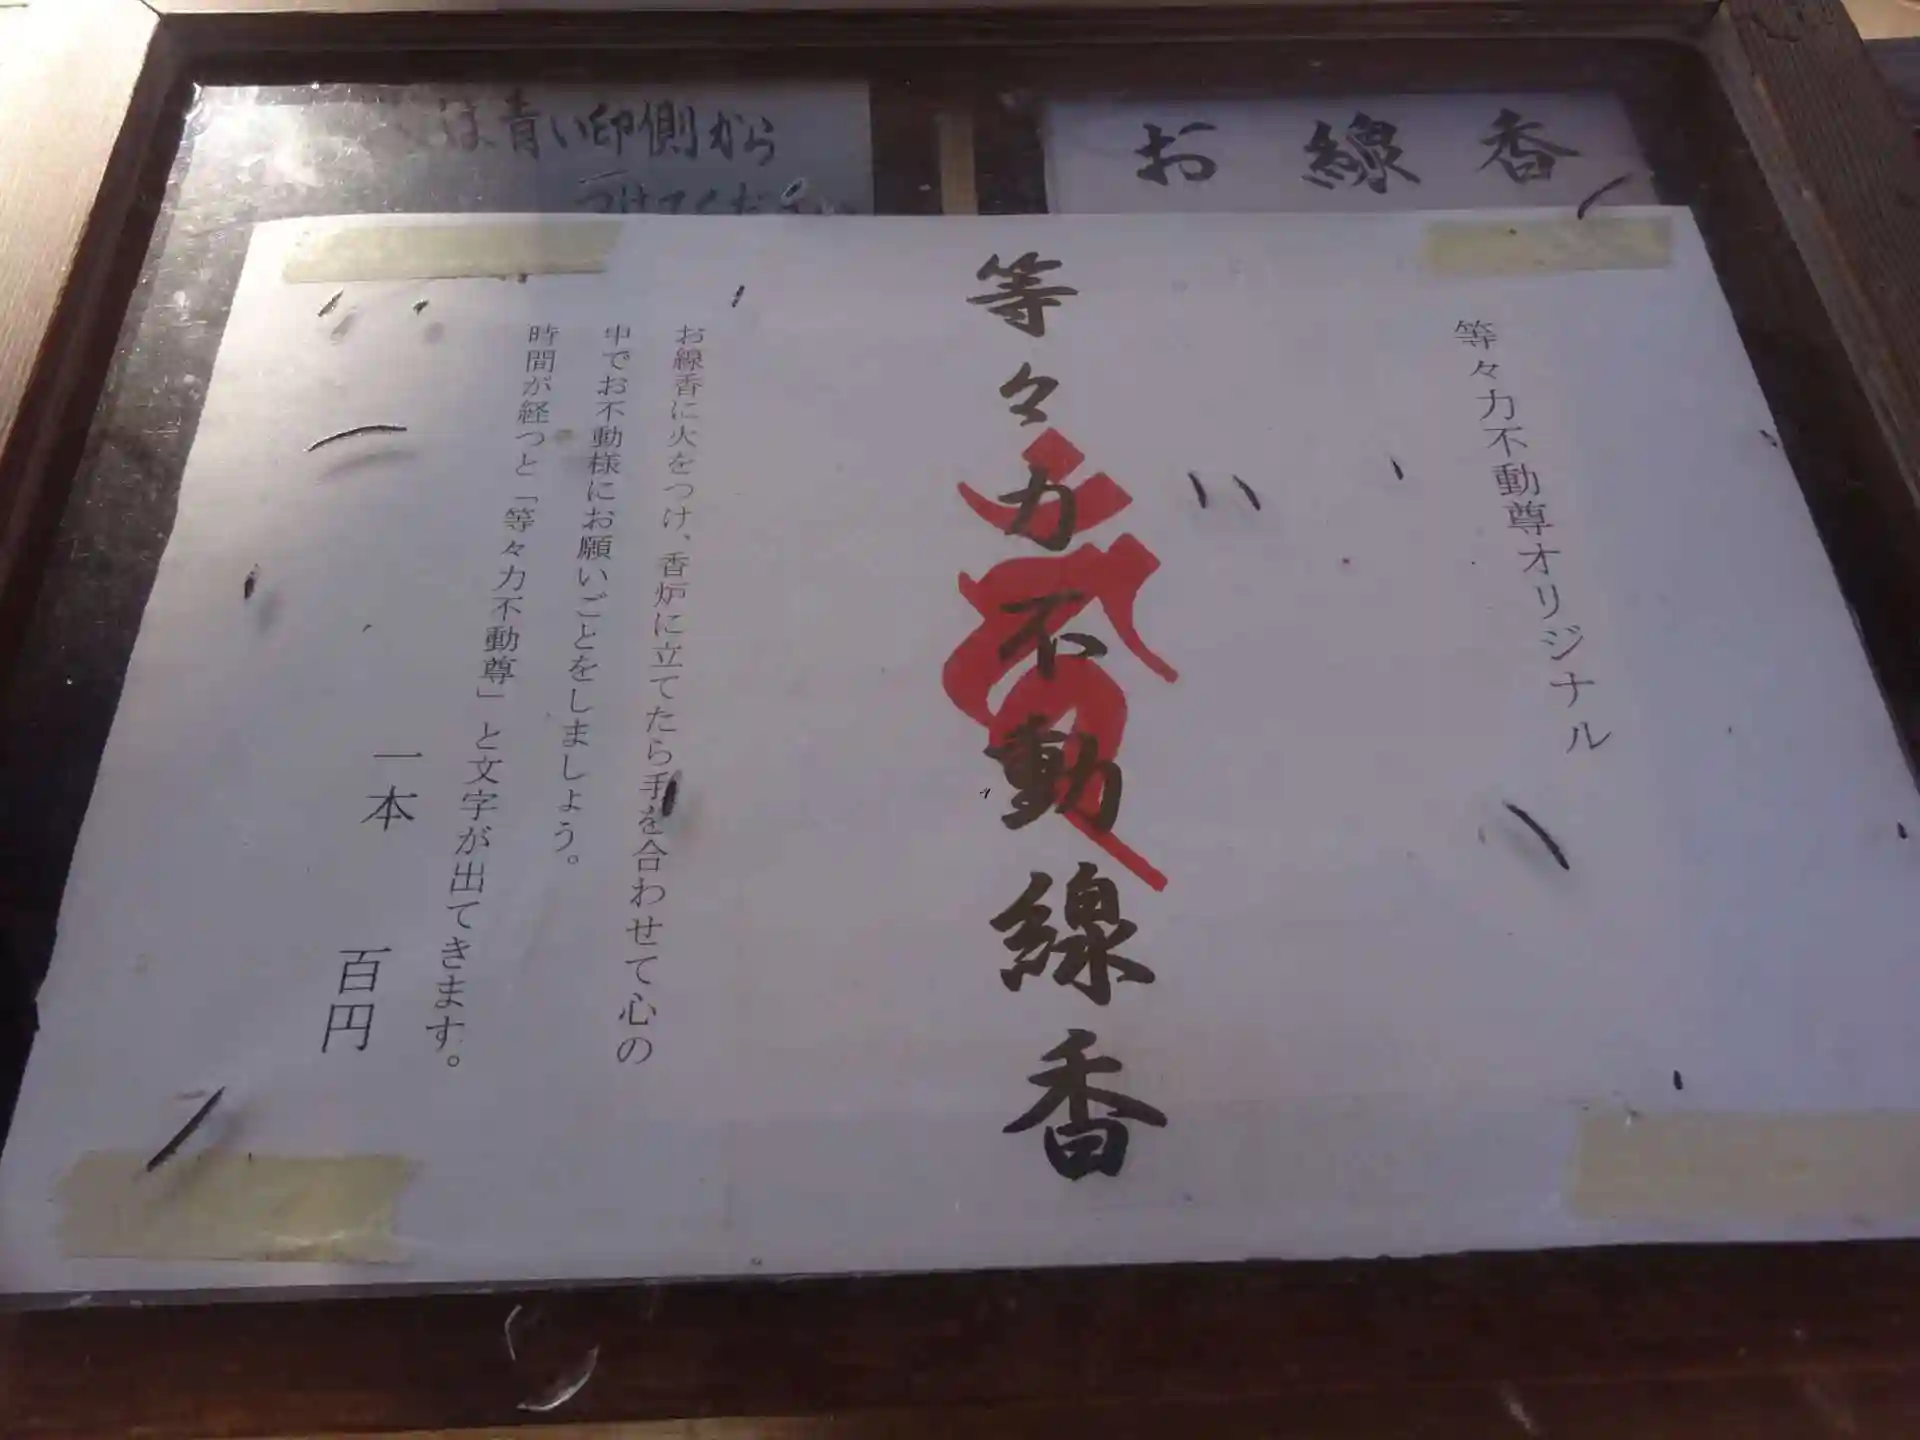 は青い印側から
つけてください
お線香
等々力不動尊オリジナル
等々力不動線香
お線香に火をつけ、香炉に立てたら手を合わせて心の
中でお不動様にお願いごとをしましょう。
時間が経つと「等々力不動尊」と文字が出てきます。
一本　百円